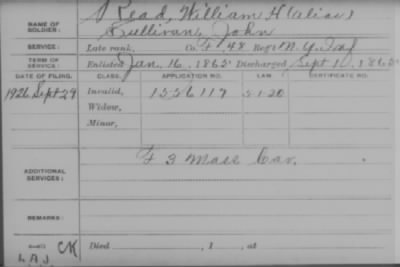 Read, William H (alias)
NAME OF SOLDIER: Sullivan, John
SERVICE: Late rank, Co. F 48 Reg't N.Y. Inf
TERM OF SERVICE: Enlisted Jan. 16, 1865 Discharged Sept 1, 1865
DATE OF FILING. CLASS. APPLICATION NO. LAW CERTIFICATE NO.
1926 Sept 29 Invalid, 1556117 5-1-20
Widow,
Minor,
ADDITIONAL SERVICES: F 3 Mass Cav.
REMARKS:
CK Died , 1 , at
LAJ